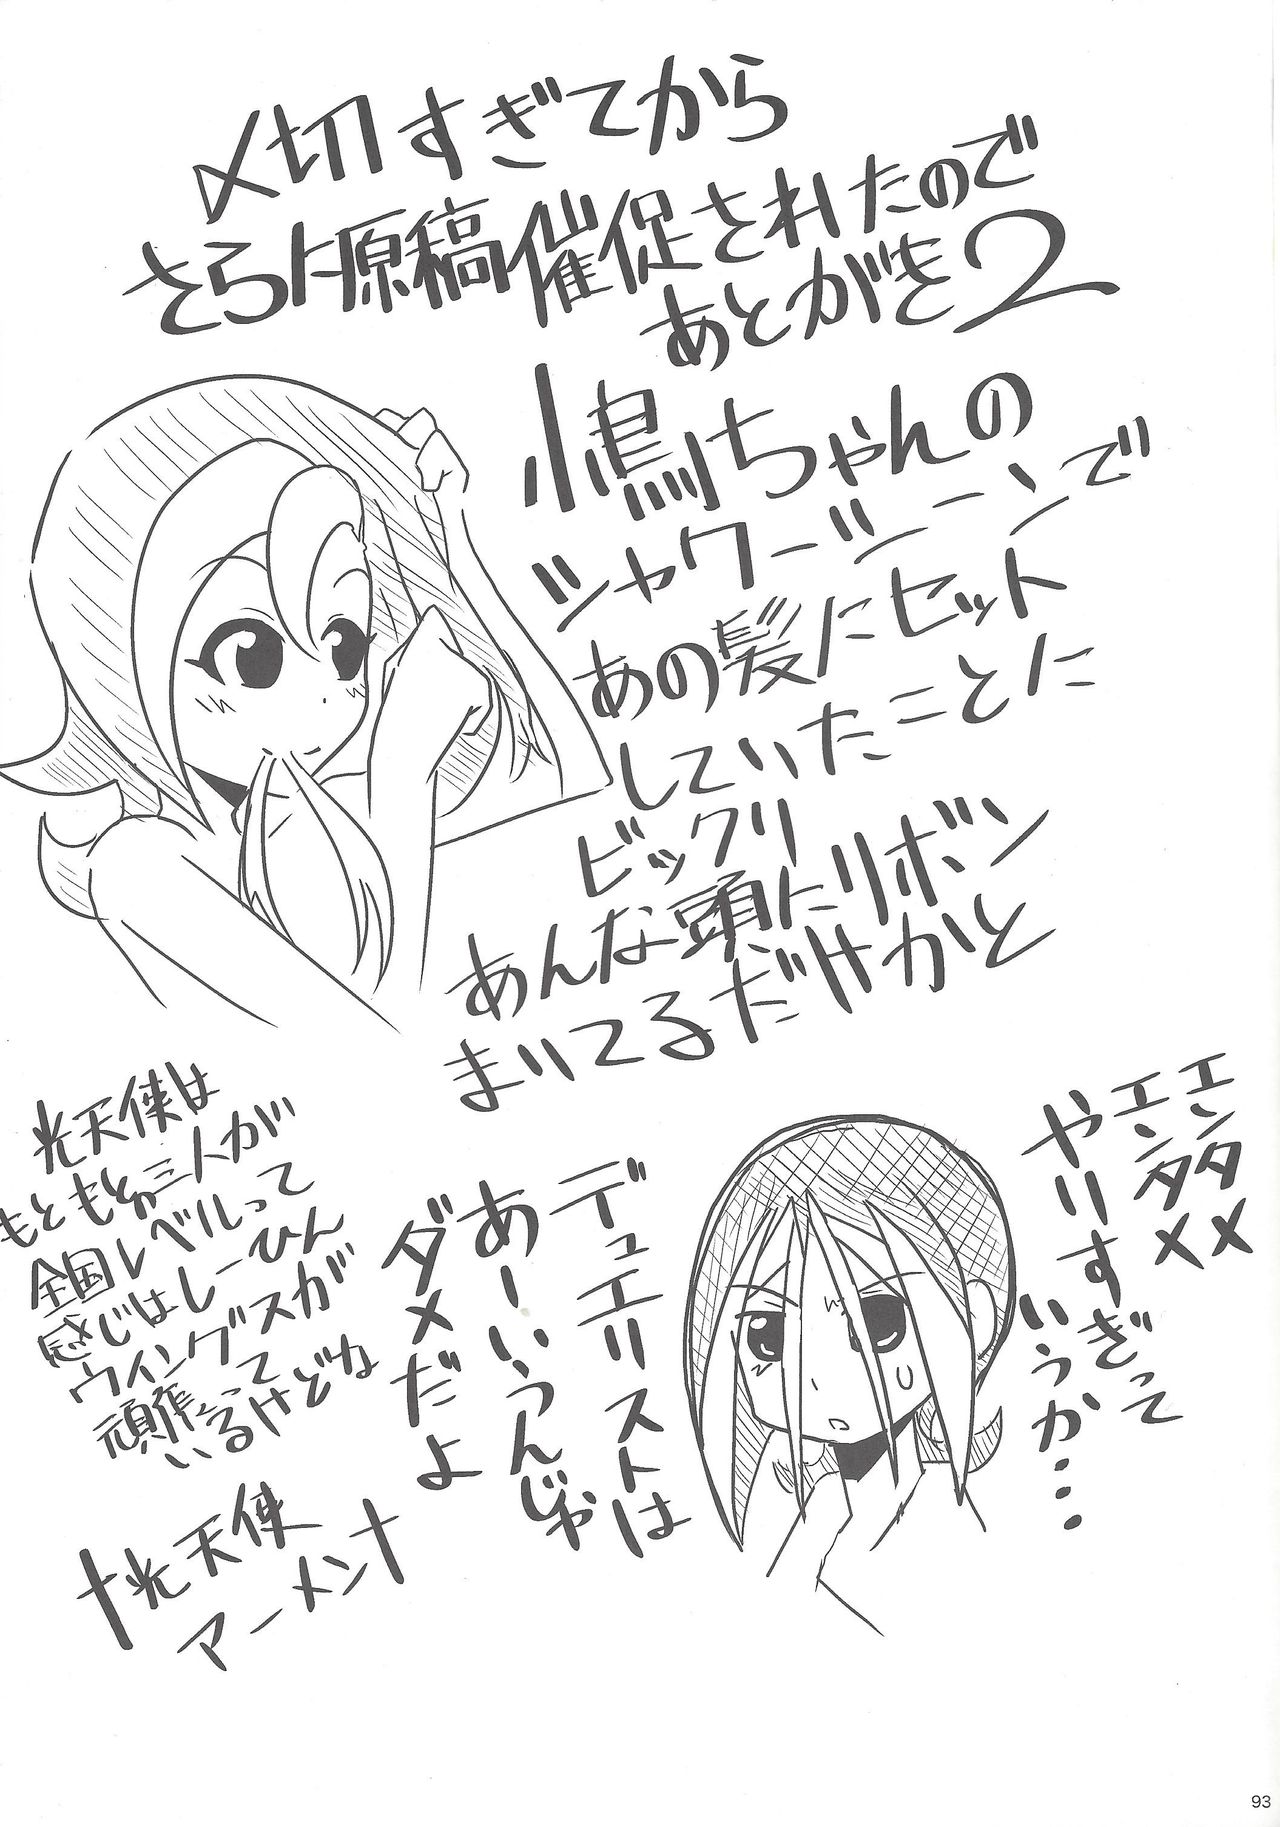 〆切すぎてから
さらに原稿催促されたので
あとがき2
小鳥ちゃんの
シャワーシーンで
あの髪にセット
していたことに
ビックリ
あんな頭にリボン
まいてるだけかと
エンタメ
エンタメ
やりすぎって
いうか・・・
デュエリストは
あーいうんじゃ
ダメだよ
光天使は
もともと三人が
全国レベルって
感じはしーひん
ウイングスが
頑張って
いるけどね
†光天使
アーメン†
93